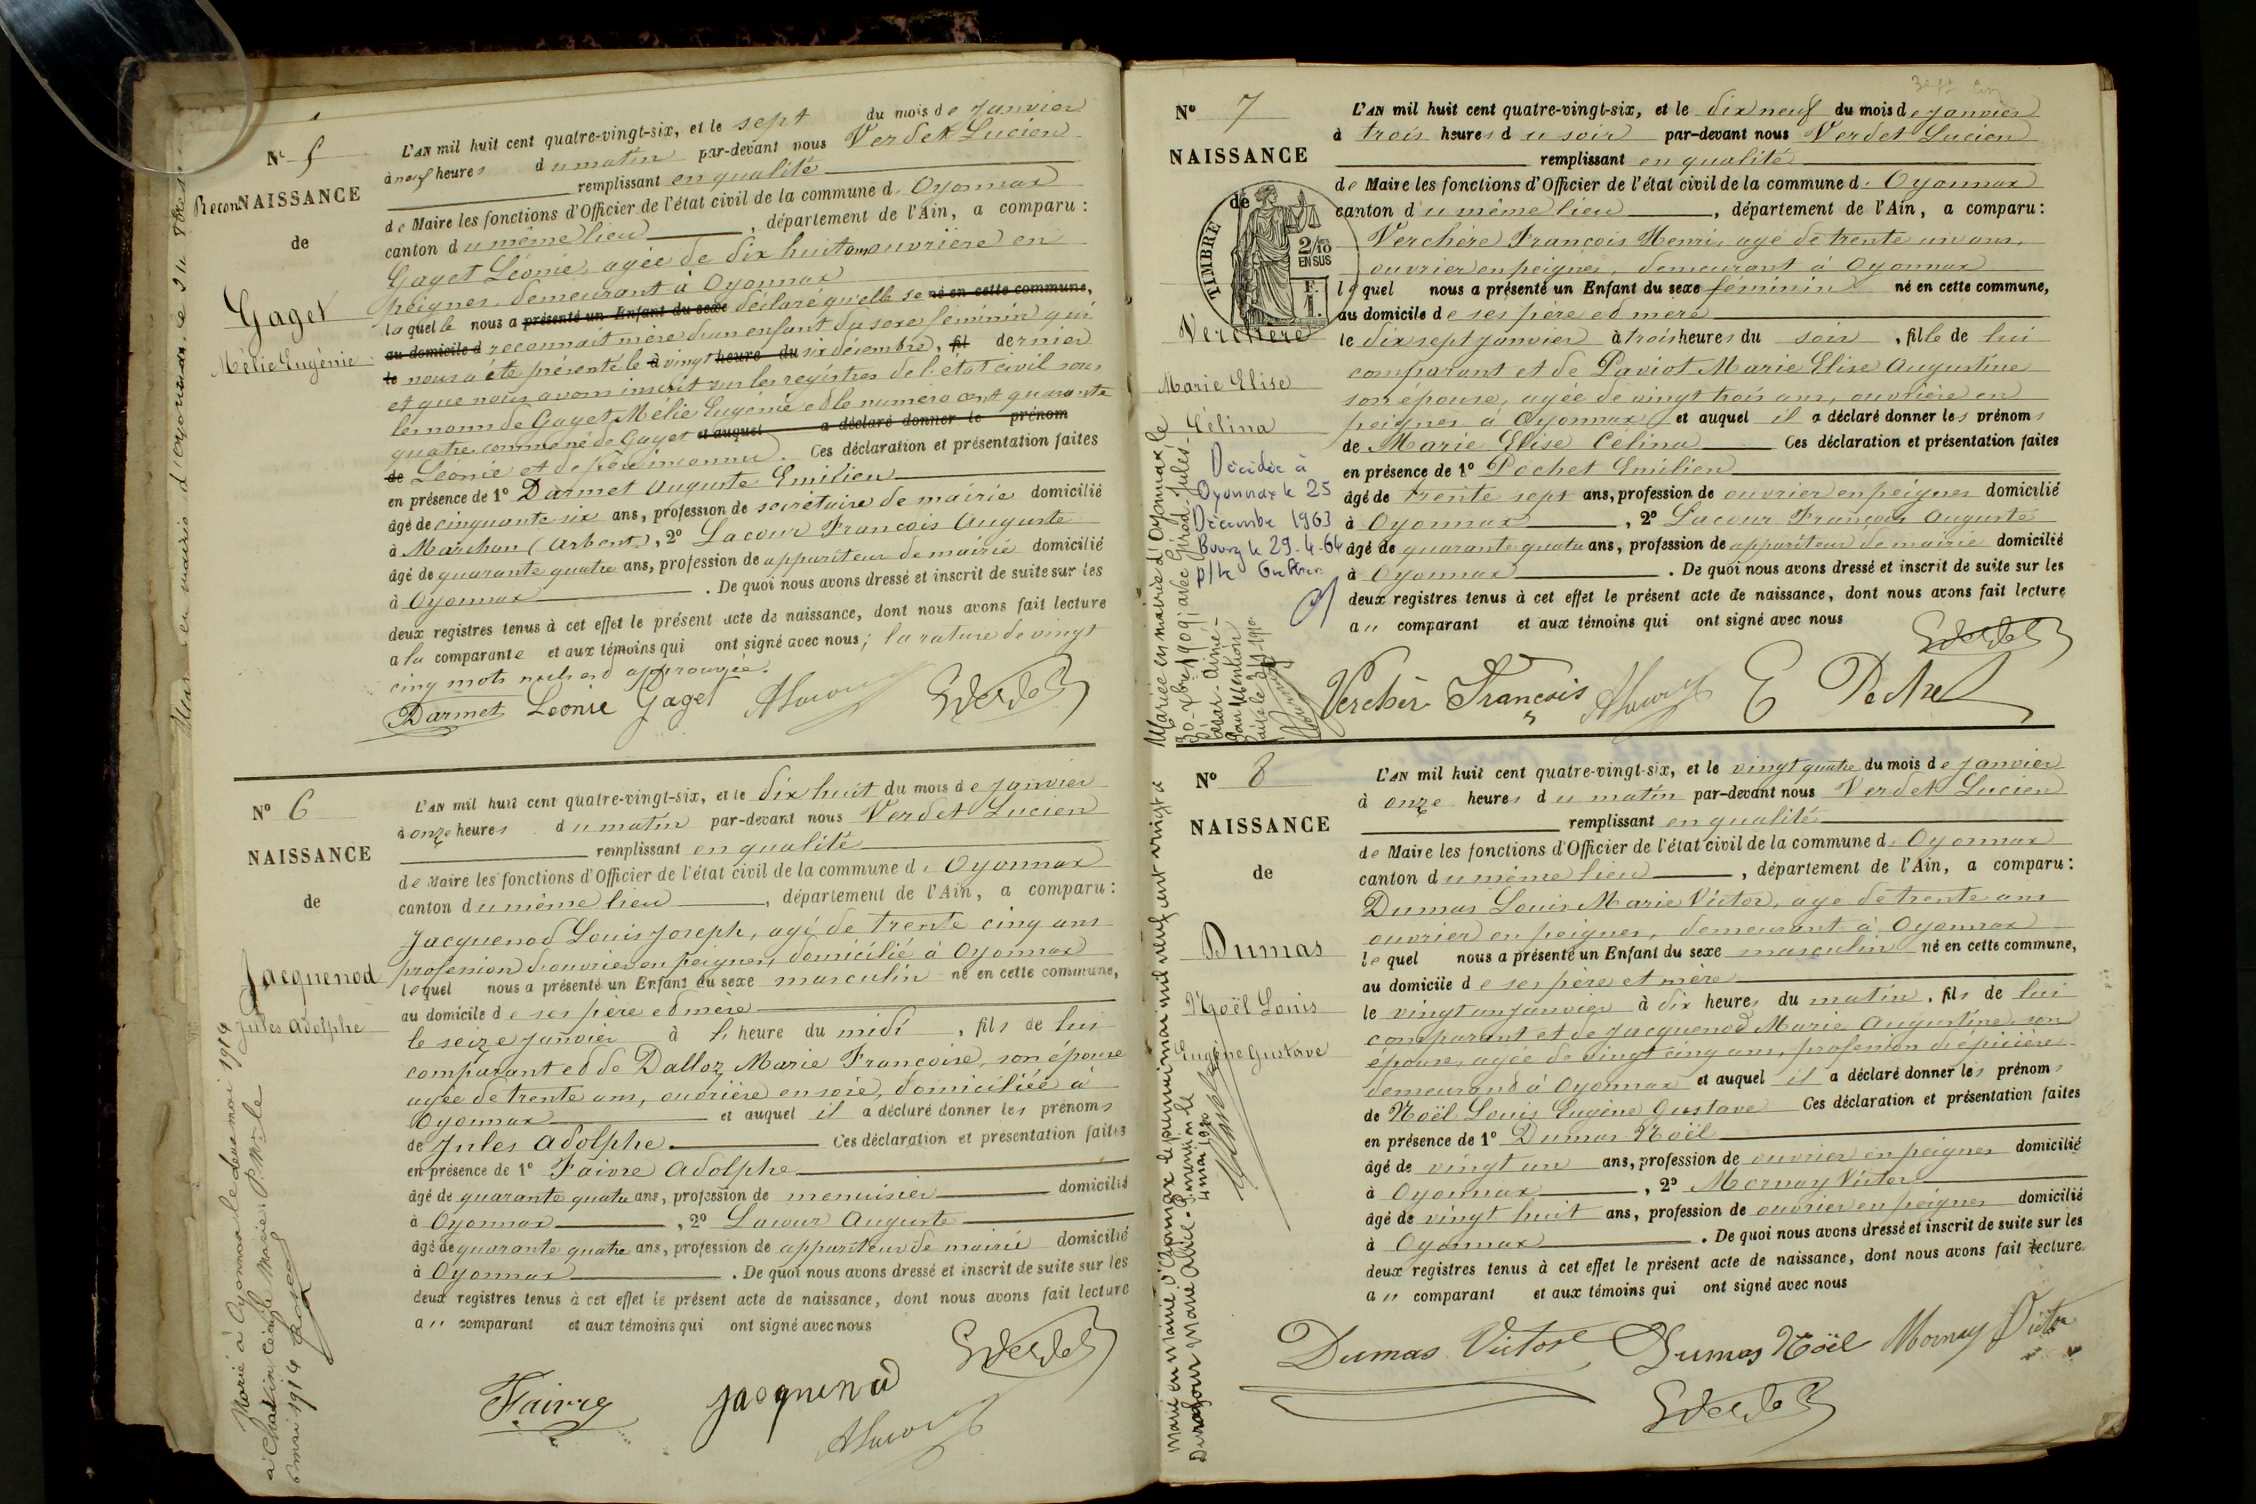 Nº 5
ReconNAISSANCE
de
Gaget
Mélie Eugénie
L'AN mil huit cent quatre-vingt-six, et le sept du mois de Janvier
à neuf heures du matin par-devant nous Verdet Lucien
remplissant en qualité
de Maire les fonctions d'Officier de l'état civil de la commune d. Oyonnax
canton du même lieu, département de l'Ain, a comparu :
Gaget Léonie, agée de dix huit ans, ouvrière en
peignes, demeurant à Oyonnax
laquelle nous a présenté un Enfant du sexe déclaré qu'elle se né en cette commune,
au domicile d reconnaît mère d'un enfant du sexe féminin qui
le nous a été présenté le à vingt heure du six décembre, fil dernier
et que nous avons inscrit sur les registres de l'état civil sous
les noms de Gaget Mélie Eugénie et le numéro cent quarante
quatre, comme né de Gaget et auquel a déclaré donner le prénom
de Léonie et de père inconnu. Ces déclaration et présentation faites
en présence de 1º Darmet Auguste Emilien
âgé de cinquante six ans, profession de secrétaire de mairie domicilié
à Marchon (Arbent), 2º Lacour François Auguste
âgé de quarante quatre ans, profession de appariteur de mairie domicilié
à Oyonnax. De quoi nous avons dressé et inscrit de suite sur les
deux registres tenus à cet effet le présent acte de naissance, dont nous avons fait lecture
a la comparante et aux témoins qui ont signé avec nous; la rature de vingt
cinq mots nuls est approuvée.
Darmet Léonie Gaget ALacour LVerdet
Nº 6
NAISSANCE
de
Jacquenod
Jules Adolphe
Marié à Oyonnax le deux mai 1914
6 mai 1914
L'AN mil huit cent quatre-vingt-six, et le dix huit du mois de janvier
à onze heures du matin par-devant nous Verdet Lucien
remplissant en qualité
de Maire les fonctions d'Officier de l'état civil de la commune d. Oyonnax
canton du même lieu, département de l'Ain, a comparu :
Jacquenod Louis Joseph, agé de trente cinq ans
profession d'ouvrier en peignes, domicilié à Oyonnax
lequel nous a présenté un Enfant du sexe masculin né en cette commune,
au domicile de ses père et mère
le seize janvier à l, heure du midi, fils de lui
comparant et de Dalloz Marie Françoise, son épouse
agée de trente ans, ouvrière en soie, domiciliée à
Oyonnax et auquel il a déclaré donner les prénoms
de Jules Adolphe Ces déclaration et présentation faites
en présence de 1º Faivre Adolphe
âgé de quarante quatre ans, profession de menuisier domicilié
à Oyonnax, 2º Lacour Auguste
âgé de quarante quatre ans, profession de appariteur de mairie domicilié
à Oyonnax. De quoi nous avons dressé et inscrit de suite sur les
deux registres tenus à cet effet le présent acte de naissance, dont nous avons fait lecture
a u comparant et aux témoins qui ont signé avec nous
LVerdet
Faivre Jacquenod
ALacour
Nº 7
NAISSANCE
de
TIMBRE
2/10 EN SUS
F. 1.
Verchère
Marie Elise
Célina
Décédée à
Oyonnax le 25
Décembre 1963
Bourg le 29.4.64
p/le Greffier
Mariée en mairie d'Oyonnax le
30 - Xbre 1909 avec Girod Jules
César Aimé -
Pour Mention
L'AN mil huit cent quatre-vingt-six, et le dix neuf du mois de janvier
à trois heures du soir par-devant nous Verdet Lucien
remplissant en qualité
de Maire les fonctions d'Officier de l'état civil de la commune d. Oyonnax
canton du même lieu, département de l'Ain, a comparu :
Verchère François Henri, agé de trente un ans,
ouvrier en peignes, demeurant à Oyonnax
lequel nous a présenté un Enfant du sexe féminin né en cette commune,
au domicile de ses père et mère
le dix sept janvier à trois heures du soir, fille de lui
comparant et de Paviot Marie Elise Augustine
son épouse, agée de vingt trois ans, ouvrière en
peignes à Oyonnax et auquel il a déclaré donner les prénoms
de Marie Elise Célina Ces déclaration et présentation faites
en présence de 1º Pochet Emilien
âgé de trente sept ans, profession de ouvrier en peignes domicilié
à Oyonnax, 2º Lacour François Auguste
âgé de quarante quatre ans, profession de appariteur de mairie domicilié
à Oyonnax. De quoi nous avons dressé et inscrit de suite sur les
deux registres tenus à cet effet le présent acte de naissance, dont nous avons fait lecture
a u comparant et aux témoins qui ont signé avec nous
LVerdet
Verchère François ALacour E Pochet
Nº 8
NAISSANCE
de
Dumas
Noël Louis
Eugène Gustave
Marié en mairie d'Oyonnax le premier mai mil neuf cent vingt à
Marie
4 mai 1920
L'AN mil huit cent quatre-vingt-six, et le vingt quatre du mois de janvier
à onze heures du matin par-devant nous Verdet Lucien
remplissant en qualité
de Maire les fonctions d'Officier de l'état civil de la commune d. Oyonnax
canton du même lieu, département de l'Ain, a comparu :
Dumas Louis Marie Victor, age de trente ans
ouvrier en peignes, demeurant à Oyonnax
lequel nous a présenté un Enfant du sexe masculin né en cette commune,
au domicile de ses père et mère
le vingt un janvier à dix heures du matin, fils de lui
comparant et de Jacquenod Marie Augustine, son
épouse, agée de vingt cinq ans, profession d'épicière
demeurant à Oyonnax et auquel il a déclaré donner les prénoms
de Noël Louis Eugène Gustave Ces déclaration et présentation faites
en présence de 1º Dumas Noël
âgé de vingt un ans, profession de ouvrier en peignes domicilié
à Oyonnax, 2º Mornay Victor
âgé de vingt huit ans, profession de ouvrier en peignes domicilié
à Oyonnax. De quoi nous avons dressé et inscrit de suite sur les
deux registres tenus à cet effet le présent acte de naissance, dont nous avons fait lecture
a u comparant et aux témoins qui ont signé avec nous
Dumas Victor Dumas Noël Mornay Victor
LVerdet